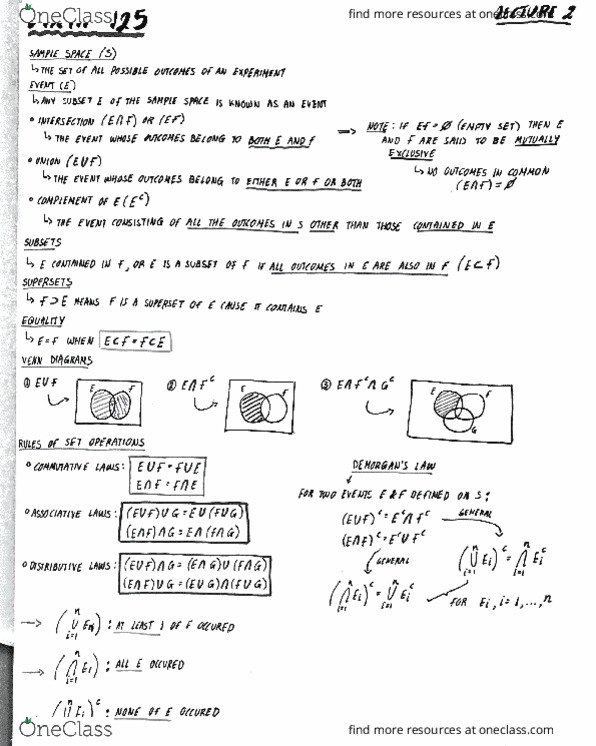 OneClass
find more resources at oneclass.com
125
LECTURE 2
SAMPLE SPACE (S)
↳ THE SET OF ALL POSSIBLE OUTCOMES OF AN EXPERIMENT
EVENT (E)
↳ ANY SUBSET E OF THE SAMPLE SPACE IS KNOWN AS AN EVENT
• INTERSECTION (E∩F) OR (EF)
↳ THE EVENT WHOSE OUTCOMES BELONG TO BOTH E AND F
⟹ NOTE: IF EF = ∅ (EMPTY SET) THEN E
AND F ARE SAID TO BE MUTUALLY
EXCLUSIVE
↳ NO OUTCOMES IN COMMON
(E∩F) = ∅
• UNION (E∪F)
↳ THE EVENT WHOSE OUTCOMES BELONG TO EITHER E OR F OR BOTH
• COMPLEMENT OF E (Eᶜ)
↳ THE EVENT CONSISTING OF ALL THE OUTCOMES IN S OTHER THAN THOSE CONTAINED IN E
SUBSETS
↳ E CONTAINED IN F, OR E IS A SUBSET OF F IF ALL OUTCOMES IN E ARE ALSO IN F (E⊂F)
SUPERSETS
↳ F⊃E MEANS F IS A SUPERSET OF E CAUSE IT CONTAINS E
EQUALITY
↳ E=F WHEN E⊂F = F⊂E
VENN DIAGRAMS
① E∪F
E F
② E∩Fᶜ
E F
③ E∩Fᶜ∩Gᶜ
E F
G
RULES OF SET OPERATIONS
• COMMUTATIVE LAWS: E∪F = F∪E
E∩F = F∩E
• ASSOCIATIVE LAWS: (E∪F)∪G = E∪(F∪G)
(E∩F)∩G = E∩(F∩G)
• DISTRIBUTIVE LAWS: (E∪F)∩G = (E∩G)∪(F∩G)
(E∩F)∪G = (E∪G)∩(F∪G)
DEMORGAN'S LAW
FOR TWO EVENTS E & F DEFINED ON S:
(E∪F)ᶜ = Eᶜ∩Fᶜ
GENERAL
(E∩F)ᶜ = Eᶜ∪Fᶜ
GENERAL
(⋃ⁿᵢ₌₁ Eᵢ)ᶜ = ⋂ⁿᵢ₌₁ Eᵢᶜ
(⋂ⁿᵢ₌₁ Eᵢ)ᶜ = ⋃ⁿᵢ₌₁ Eᵢᶜ
FOR Eᵢ, i = 1, ..., n
→ (⋃ⁿᵢ₌₁ Eᵢ) : AT LEAST 1 OF F OCCURED
→ (⋂ⁿᵢ₌₁ Eᵢ) : ALL E OCCURED
(⋃ⁿ Eᵢ)ᶜ : NONE OF E OCCURED
OneClass
find more resources at oneclass.com